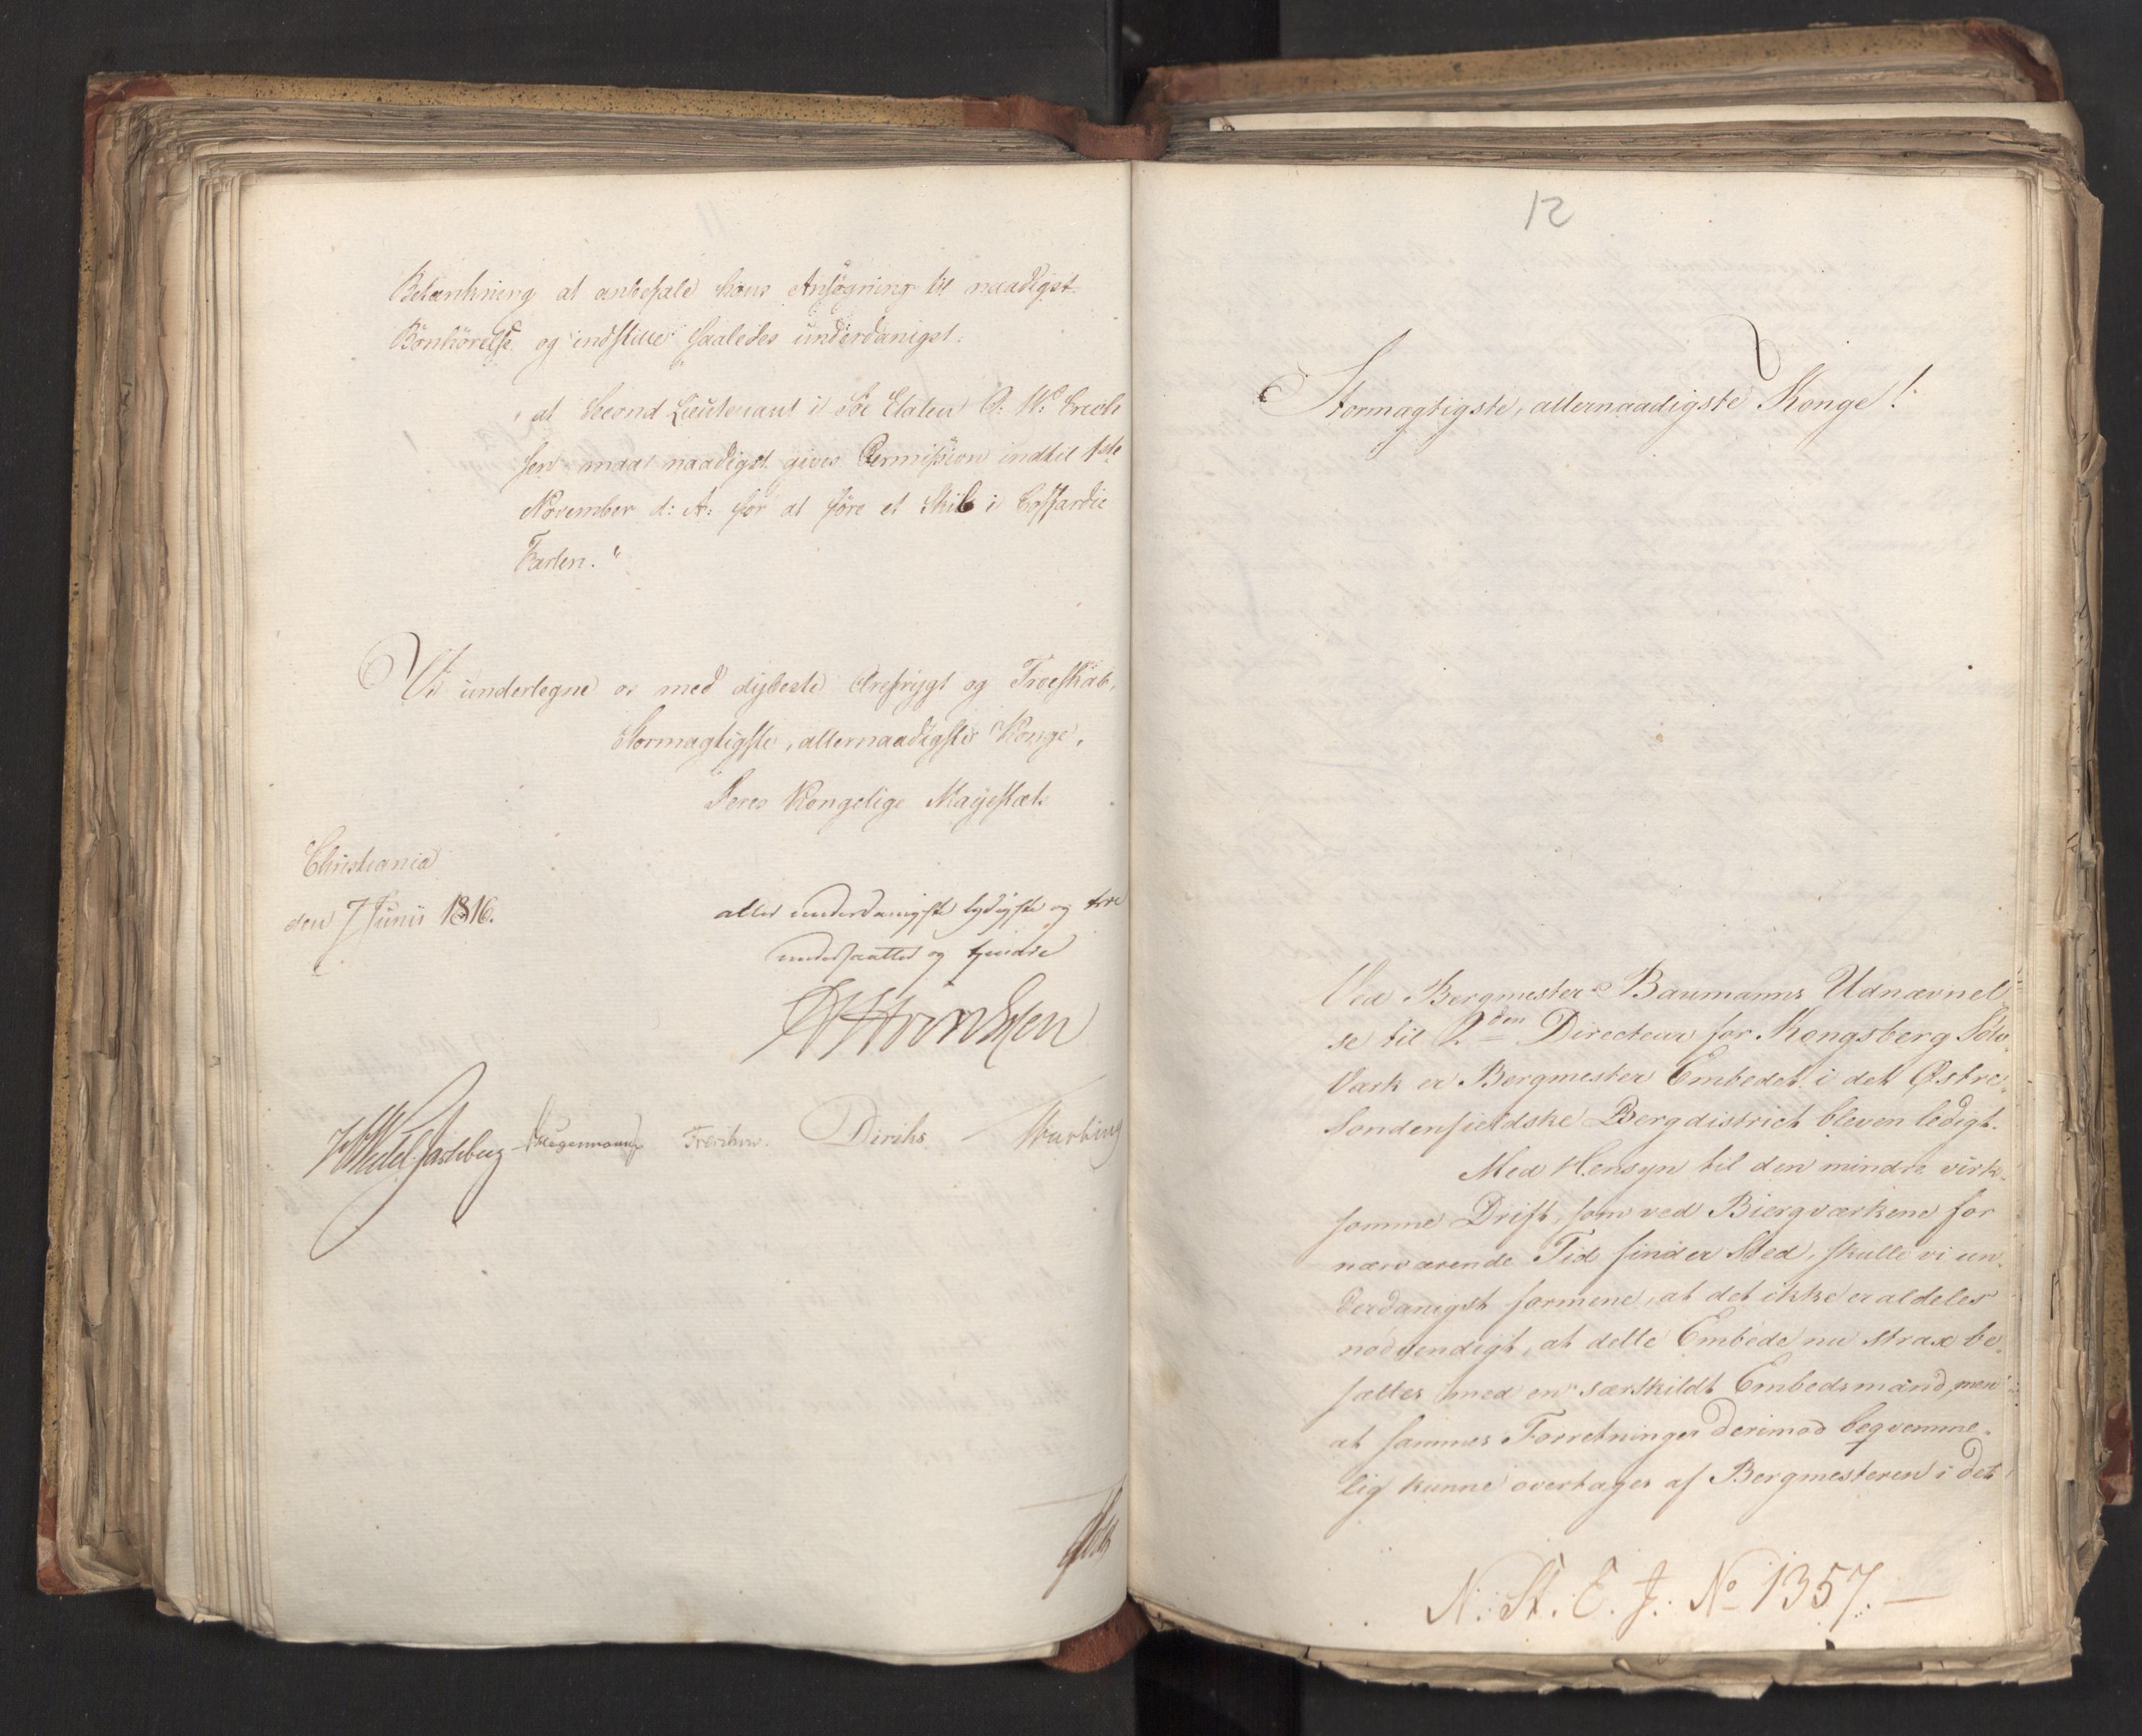 Betænkning at anbefale hans Ansøgning til naadigst
Bönhörelse og indstille saaledes underdanigst:
"at Second Lieutenant i Söe Etaten P: W: Erich
sen maae naadigst gives Permission indtil 1ste
November d: A: for at före et Skib i Coffardie
Farten."
Vi underlegne os med dybeste Ærefrygt og Troeskab,
Stormægtigste, allernaadigste Konge,
Deres Kongelige Majestæts
Christiania
den 7 Junii 1816.
aller underdanigste lydigste og troe
undersaatter og tjenere
WWedel Jarlsberg Hegermann Diriks
12
Stormægtigste, allernaadigste Konge!
Ved Bergmester Baumanns Udnævnel
se til 2den Directeur for Kongsberg Sölv
Værk er Bergmester Embedet i det Østre
Söndenfieldske Bergdistrict bleven ledigt.
Med Hensyn til den mindre virk
somme Drift, som ved Biergværkene for
nærværende Tid finder Sted, skulle vi un
derdanigst formene, at det ikke er aldeles
nødvendigt, at dette Embede nu strax be
sættes med en særskildt Embedsmand, men
at sammes Forretninger derimod beqvemme
lig kunne overtages af Bergmesteren i det
N. St. E. J. No 1357.